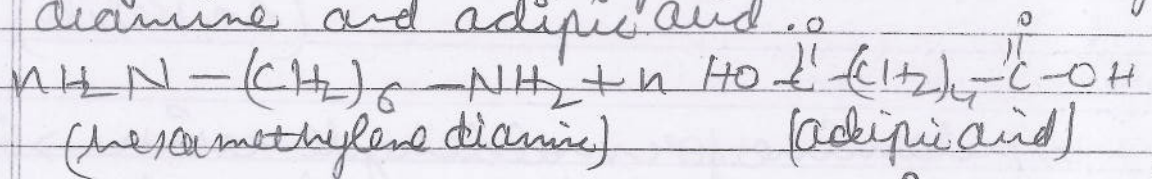 diamine and adipic acid.
O O
nH2N-(CH2)6-NH2+n HO-C-(CH2)4-C-OH
(hexamethylene diamine) (adipic acid)